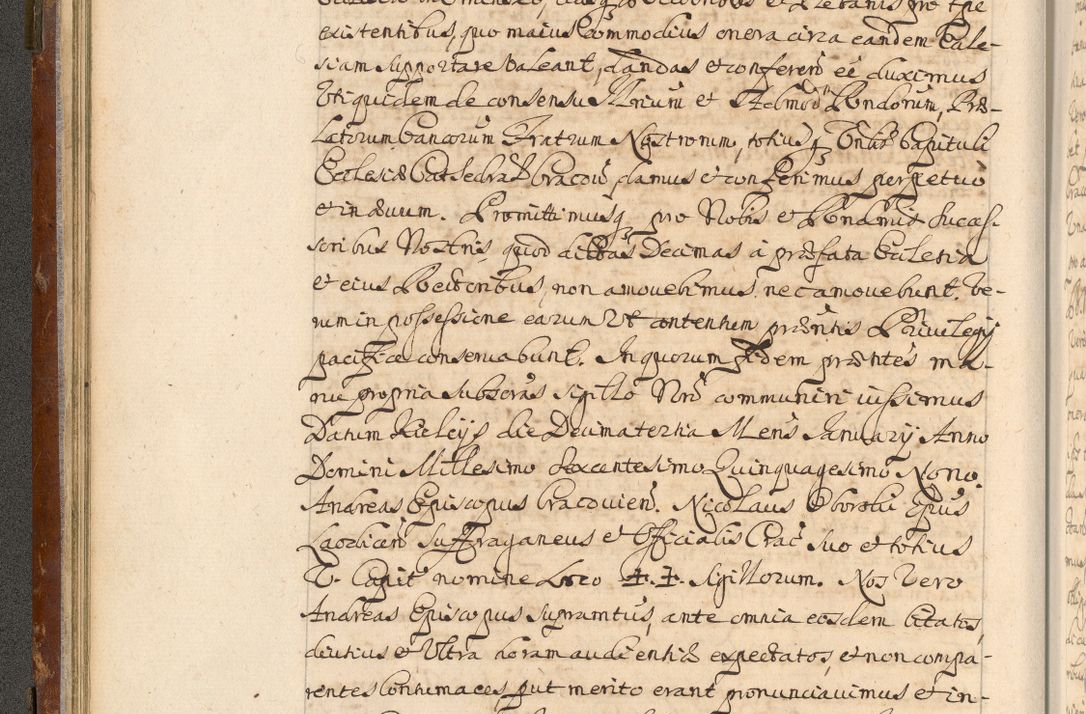 existentibus, quo maius commodius onera circa eandem Eccle-
siam supportare valeant, dandas et conferen. ee. duximus
Uti quidem de consensu Illrium et Adm. Rndorum, Præ-
latorum Canonicorum Fratrum Nostrorum, totiusq Vnlis Capituli
Ecclesiæ Cathedralis Cracoviensis damus et conferimus perpetuo
et in ævum. Promittimusq pro Nobis et Rndmis Succes-
soribus Nostris, quod dictas Decimas à præfata Ecclesia
et eius Rectoribus, non amovebimus, nec amovebunt. Ve-
rum in possessione earum et contentum præntis Privilegij
pacifice conservabunt. In quorum fidem præntes ma-
nu propria subscras sigillo Nro communiri iussimus
Datum Kielcijs die Decima tertia Mens Ianuarij Anno
Domini Millesimo Sexcentesimo Quinquagesimo Nono.
Andreas Episcopus Cracovien. Nicolaus Oborski Epus
Laodicen Suffraganeus et Officialis Crac suo et totius
V. Capit nomine Loco ‡. ‡. Sigillorum. Nos vero
Andreas Episcopus supramtus, ante omnia eosdem citatos,
diutius et Ultra horam audientiæ expectatos, et non compa-
rentes Contumaces, put merito erant pronunciavimus et in-